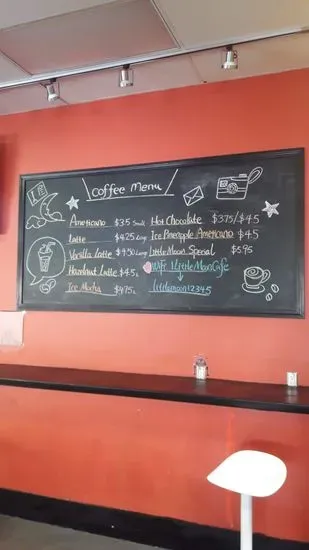 Coffee Menu
Americano $3.5 Small
Latte $4.25 Larg
Vanilla Latte $4.50 Larg
Hazelnut Latte $4.5L
Ice Mocha $4.75L
Hot Chocolate $3.75/$4.5
Ice Pineapple Americano $4.5
Little Moon Special $5.95
Wifi: LittleMoonCafe
littlemoon12345